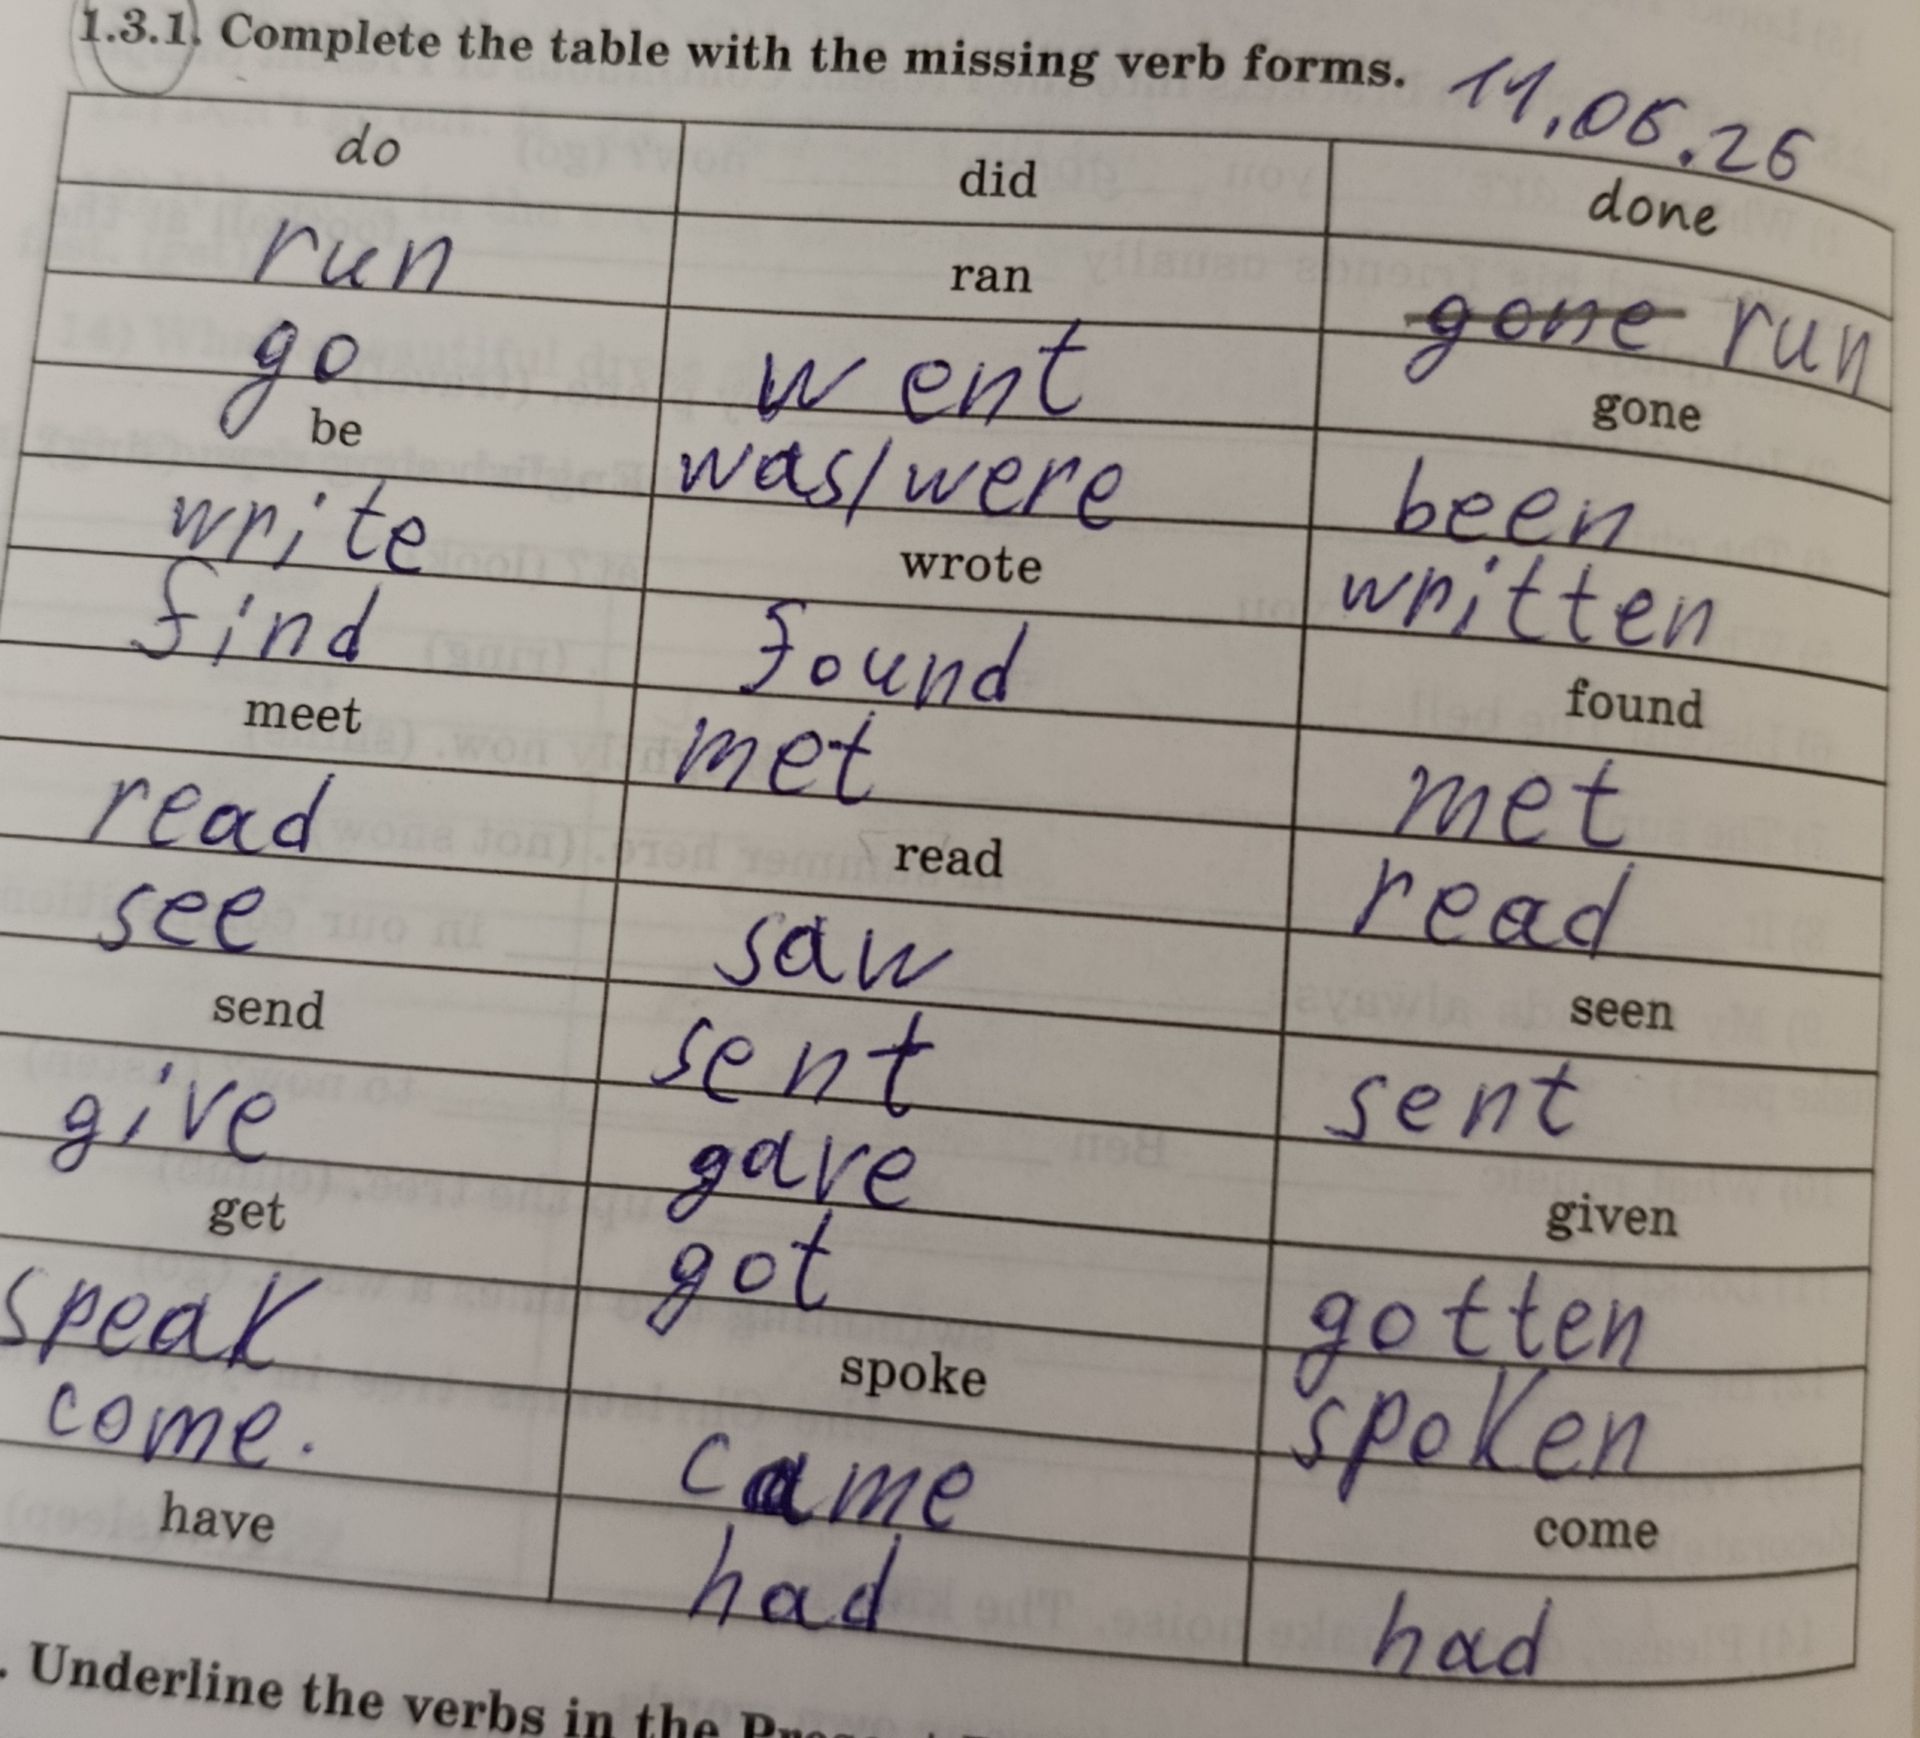 1.3.1. Complete the table with the missing verb forms. 11.06.26
do did done
run ran gone run
go went gone
be was/were been
write wrote written
find found found
meet met met
read read read
see saw seen
send sent sent
give gave given
get got gotten
speak spoke spoken
come. came come
have had had
. Underline the verbs in the